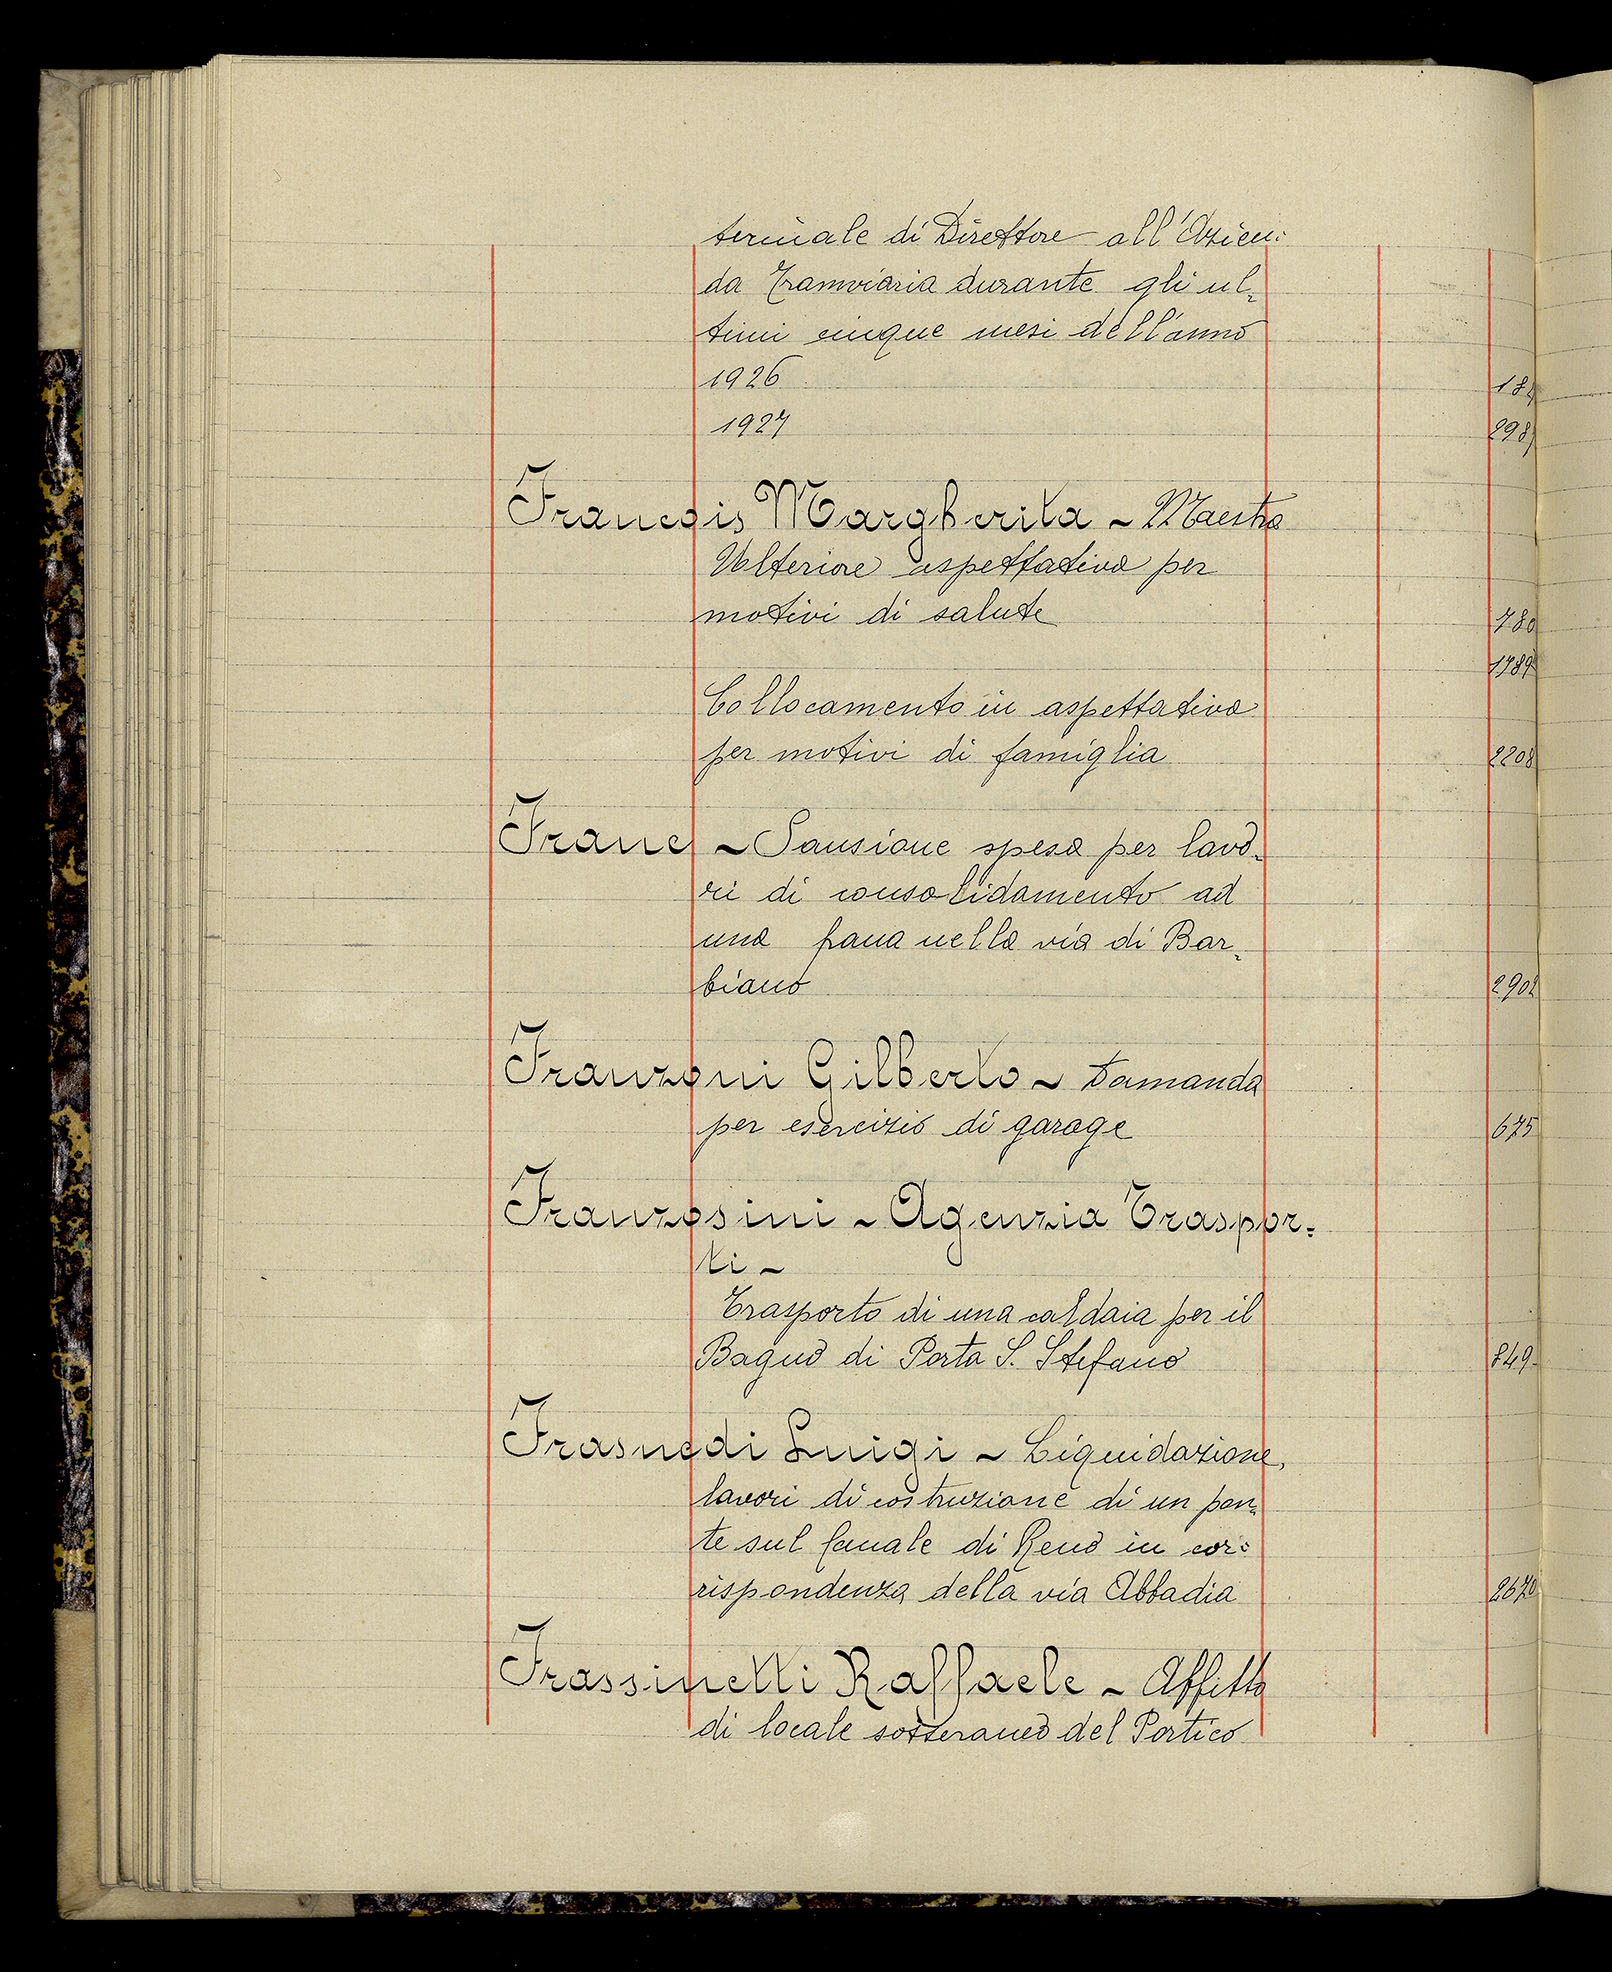 terinale di Direttore all'Azien:
da Tramviaria durante gli ul-
timi cinque mesi dell'anno
1926
1927
Francois Margherita - Maestra
Ulteriore aspettativa per
motivi di salute 780
1789
Collocamento in aspettativa
per motivi di famiglia 2208
Frane - Sansione spesa per lavo-
ri di consolidamento ad
una frana nella via di Bar-
biano
Franzoni Gilberto - Domanda
per esercizio di garage 675
Franzosini - Agenzia Traspor:
ti -
Trasporto di una caldaia per il
Bagno di Porta S. Stefano 849
Frasnedi Luigi - Liquidazione,
lavori di costruzione di un pon-
te sul Canale di Reno in cor:
rispondenza della via Abbadia 2670
Frassinetti Raffaele - Affitto
di locale sotteraneo del Portico